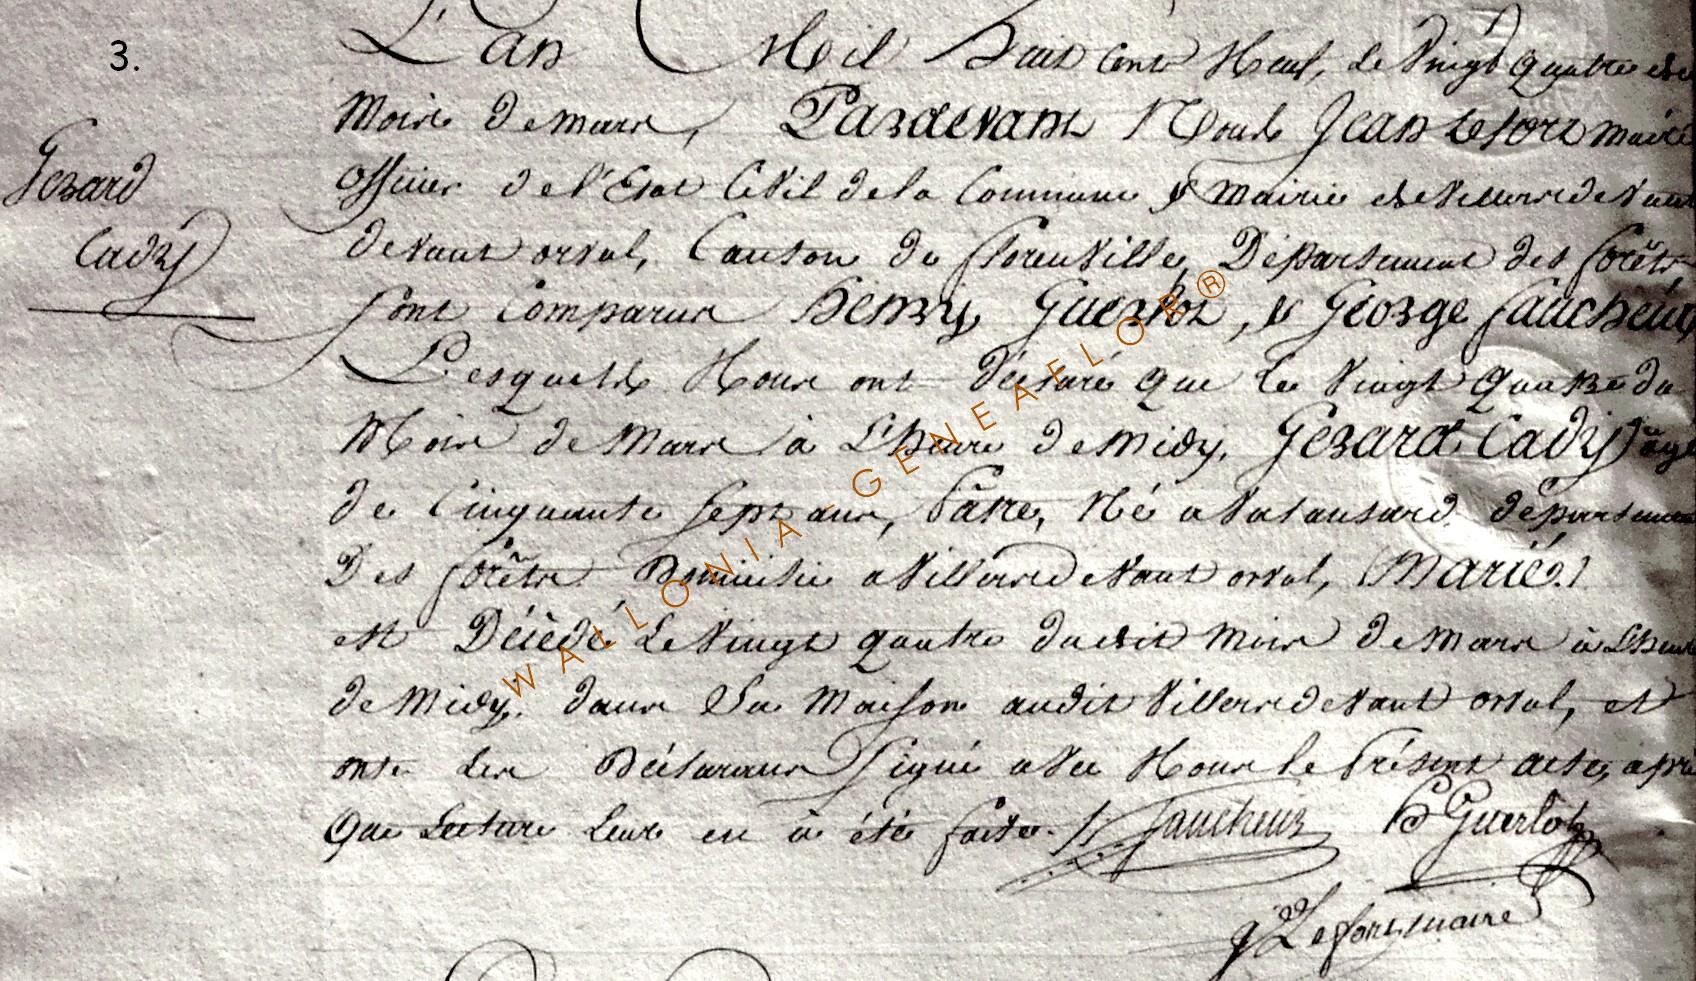 3.
Gerard
Cadry
L'an Mil huit cent Neuf, le vingt quatre du
Mois de mars, Pardevant Nous Jean Lefort maire
officier de l'Etat Civil de la Commune & Mairie de Villers devant
devant orval, Canton de florenville, Département des forêts
sont comparus henry Guerlot, & George faucheux
Lesquels Nous ont déclaré que le vingt quatre du
Mois de Mars à L'heure de midy, Gerard Cadry âgé
de Cinquante sept ans, Pâtre, Né a Valansard département
Des forêts Domicilié a Villers devant orval, Marié
est Décédé Le vingt quatre du dit mois de mars à L'heure
de Midy, dans Sa maison audit Villers devant orval, et
ont les Déclarans signé avec Nous le Présent acte, après
Que Lecture leur en à été faite. faucheux h Guerlot
J Lefort maire
WALLONIA-GENEAFLOR®